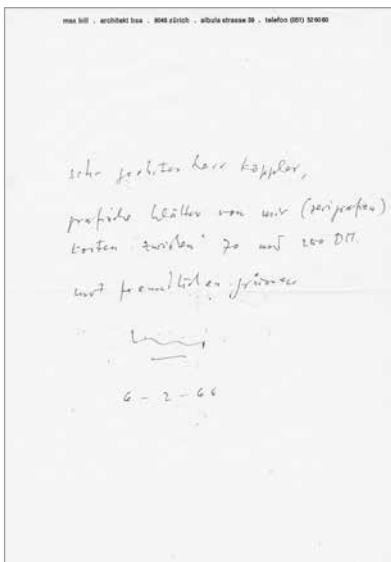 max bill . architekt bsa . 8048 zürich . albula strasse 39 . telefon (051) 526060
sehr geehrter herr käppler,
grafische blätter von mir (serigrafien)
kosten zwischen 70 und 200 DM.
mit freundlichen grüssen
6 - 2 - 68